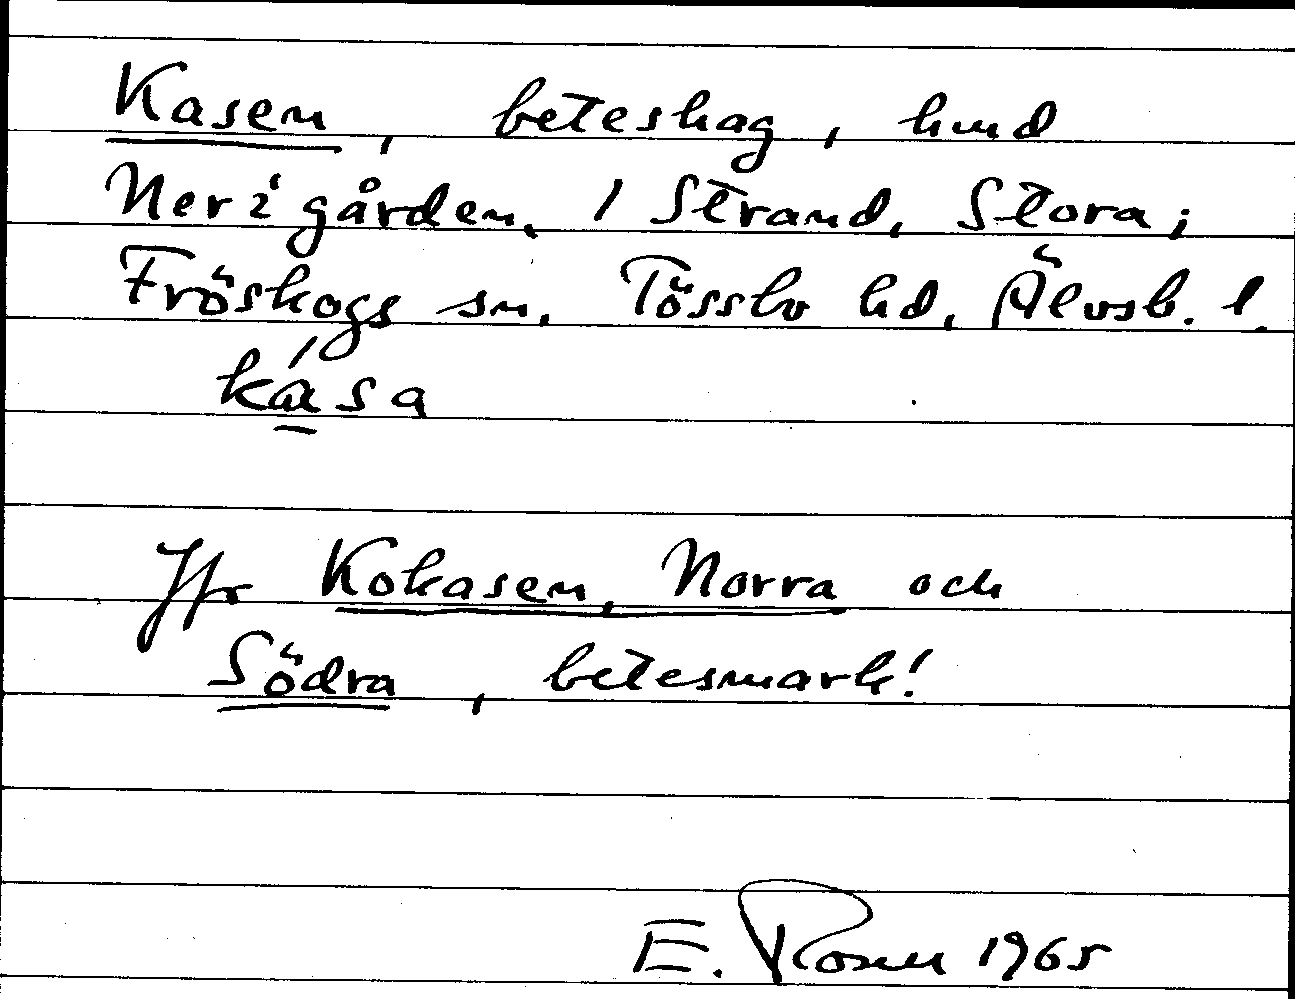 Kasen, beteshag, hmd
Ner i gården, 1 Strand, Stora;
Fröskogs sn. Tössbo hd, Älvsb. l.
ká̱sa
Jfr Kokasen, Norra och
Södra, betesmark!
E. Rosen 1965